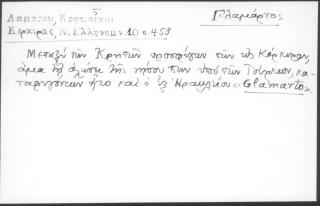 Λαμπρου, Κρητ. οικοι
Κερκυρας, Ν. Ελληνομν. 10 σ. 453
Γλαμάρτος
Μεταξύ των Κρητών προσφύγων των εις Κέρκυραν,
άμα τη αλώσει της νήσου των υπό των Τούρκων, κα-
ταφυγόντων ήτο και ο εξ Ηρακλείου «Glamarto».